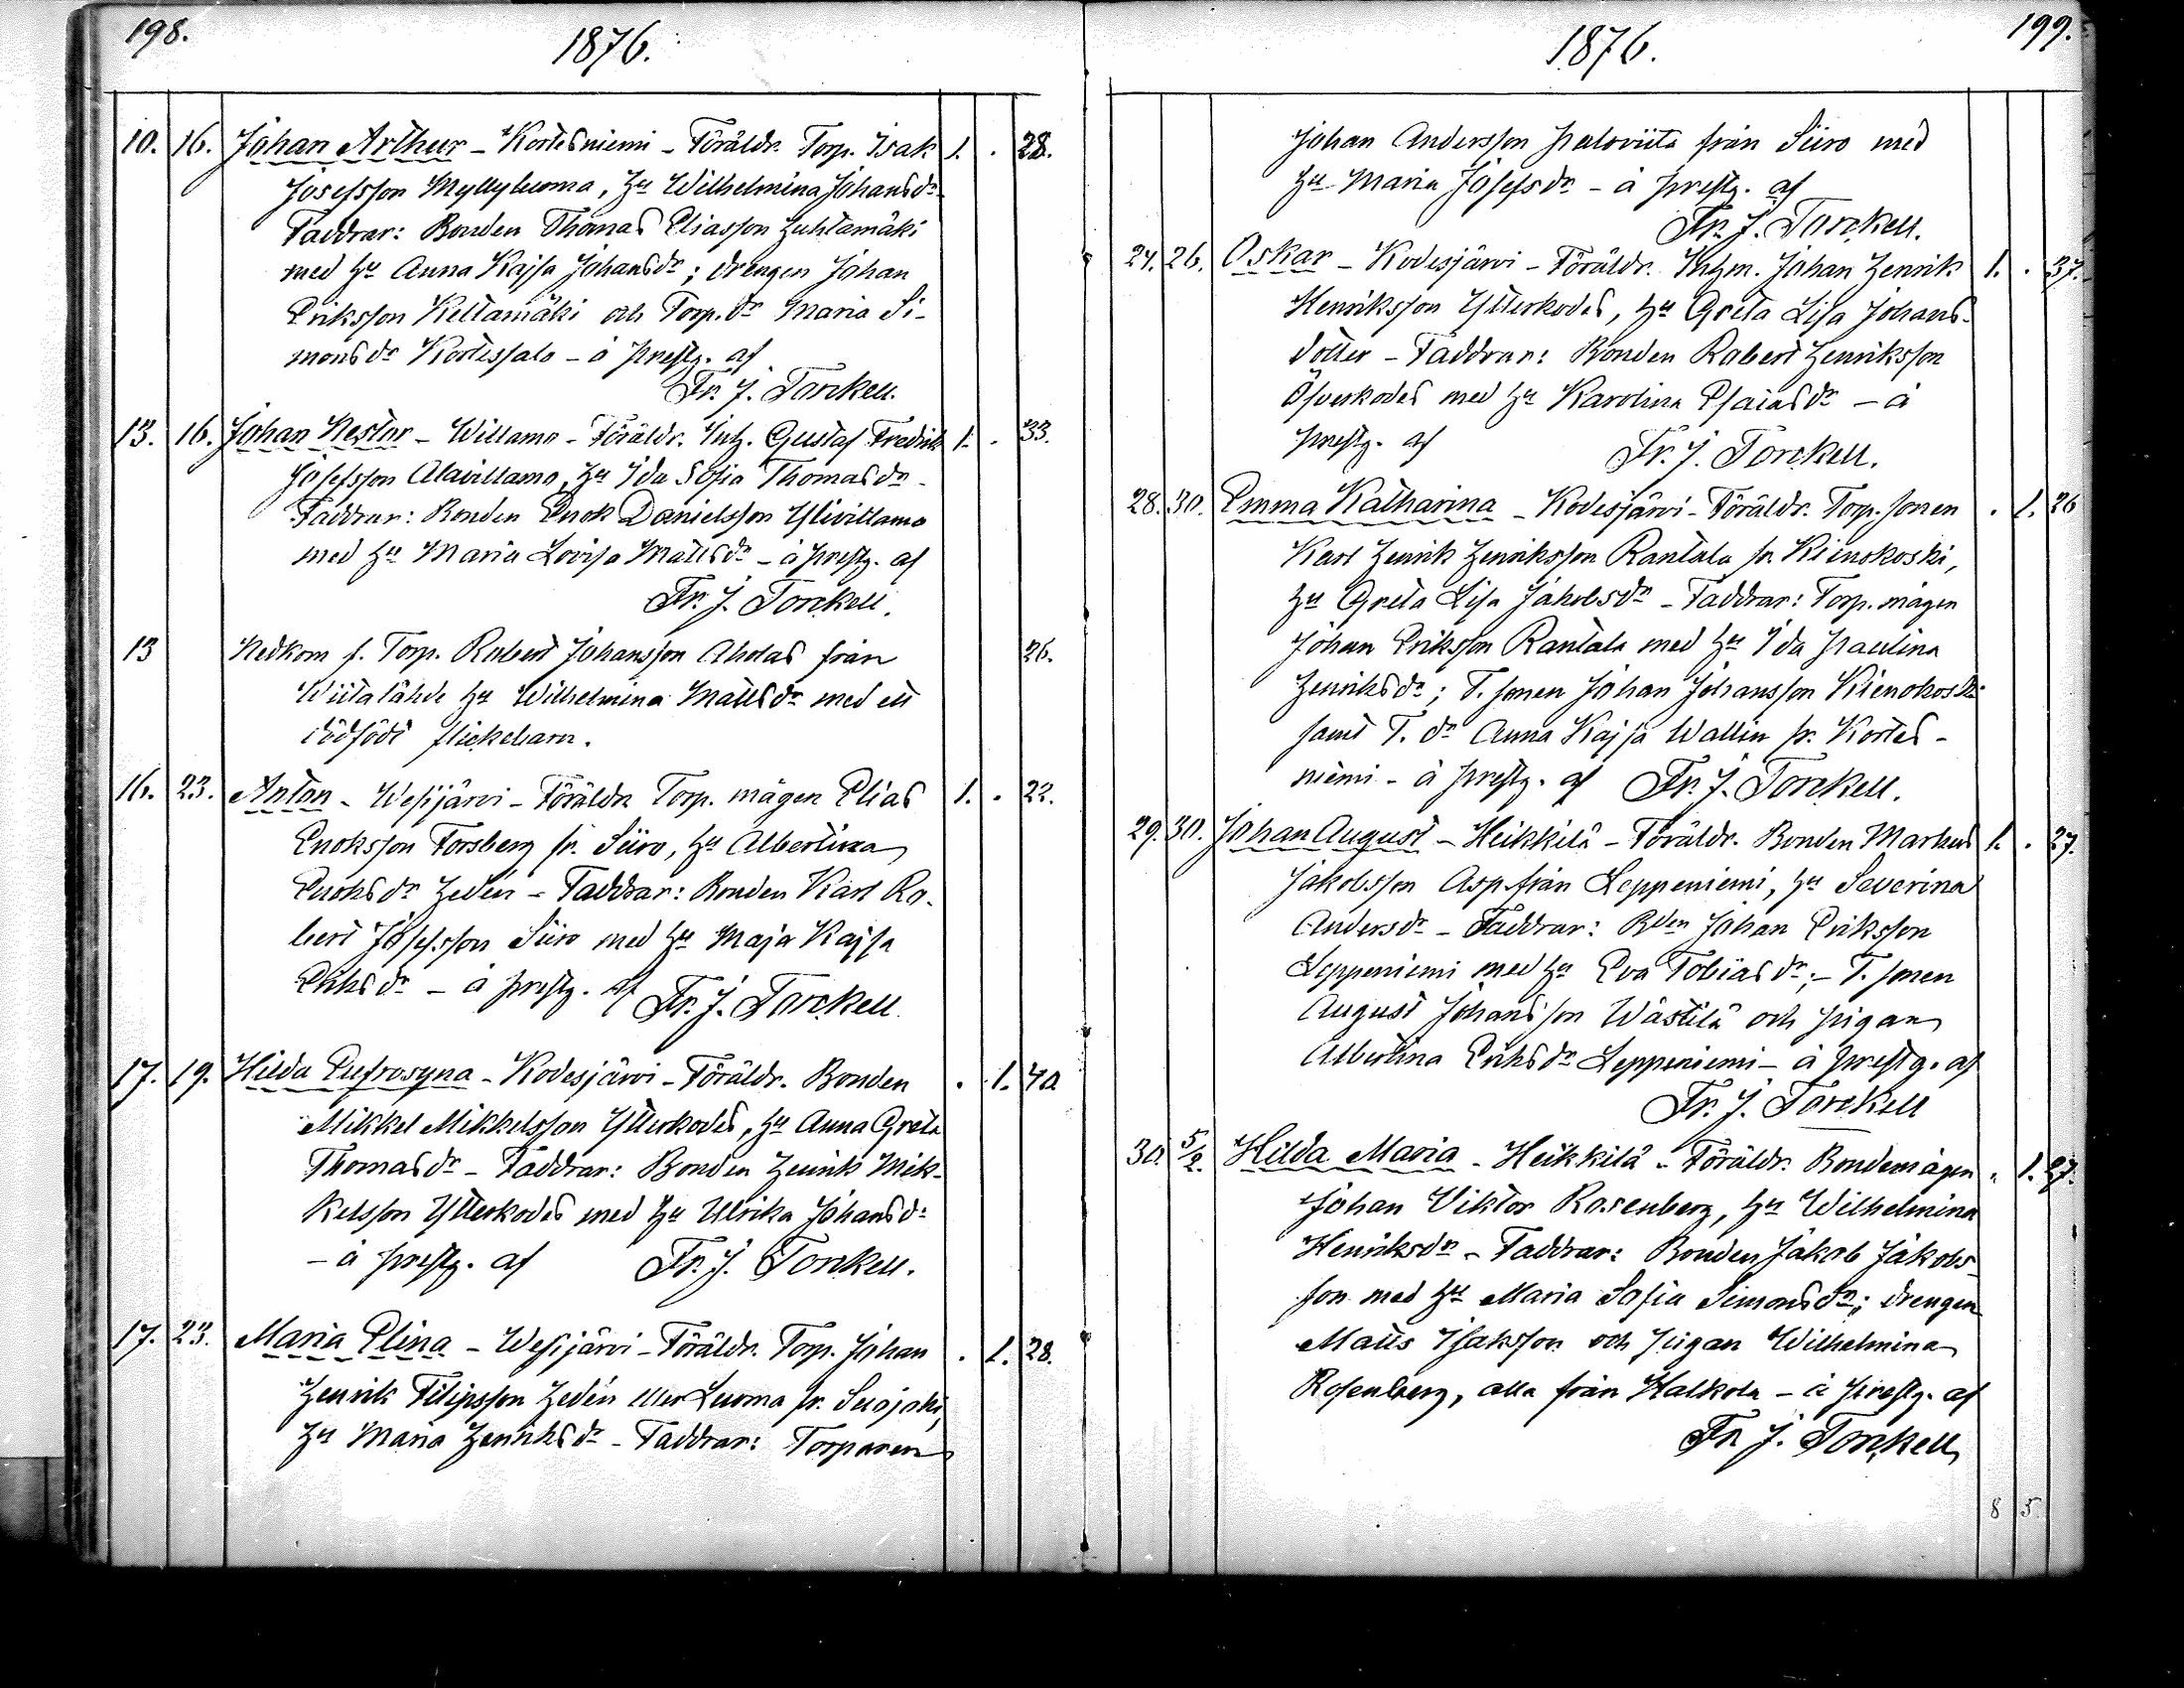 198.
1876.
10. 16. Johan Arthur - Kortesniemi - Föräldr. Torp. Isak 1. . 28.
Josefsson Myllyluoma, Hu Wilhelmina Johansdr -
Faddrar: Bonden Thomas Eliasson Huhtamäki
med Hu Anna Kajsa Johansdr; drengen Johan
Eriksson Keltamäki och Torp. dr Maria Si-
monsdr Kortessalo - å prestg. af
Fr. J. Torckell.
13. 16. Johan Nestor - Willamo - Föräldr. Inh. Gustaf Fredrik 1. . 33.
Josefsson Alavillamo, Hu Ida Sofia Thomasdr -
Faddrar: Bonden Enok Danielsson Ylivillamo
med Hu Maria Lovisa Mattsdr - å prestg. af
Fr. J. Torckell.
13 Nedkom f. Torp. Robert Johansson Aholas från 26.
Wiitalähde Hu Wilhelmina Mattsdr med ett
dödfödt flickebarn.
16. 23. Anton - Wesijärvi - Föräldr. Torp. mågen Elias 1. . 22.
Enoksson Forsberg fr. Siiro, Hu Albertina
Enoksdr Hedén - Faddrar: Bonden Karl Ro-
bert Josefsson Siiro med Hu Maja Kajsa
Eriksdr - å prestg. af Fr. J. Torckell.
17. 19. Hilda Eufrosyna - Kodesjärvi - Föräldr. Bonden . 1. 40.
Mikkel Mikkelsson Ytterkodes, Hu Anna Greta
Thomasdr - Faddrar: Bonden Henrik Mik-
kelsson Ytterkodes med Hu Ulrika Johansdr
- å prestg. af Fr. J. Torckell.
17. 23. Maria Elina - Wesijärvi - Föräldr. Torp. Johan . 1. 28.
Henrik Filipsson Hedén eller Luoma fr. Suojoki,
Hu Maria Henriksdr - Faddrar: Torparen
1876.
199.
Johan Andersson Paloviita från Siiro med
Hu Maria Josefsdr - å prestg. af
Fr. J. Torckell.
24. 26. Oskar - Kodesjärvi - Föräldr. Inhm. Johan Henrik 1. . 37.
Henriksson Ytterkodes, Hu Greta Lisa Johans-
dotter - Faddrar: Bonden Robert Henriksson
Öfverkodes med Hu Karolina Esaiasdr - å
prestg. af Fr. J. Torckell.
28. 30. Emma Katharina - Kodesjärvi - Föräldr. Torp. sonen . 1. 26
Karl Henrik Henriksson Rantala fr. Kienokoski,
Hu Greta Lisa Jakobsdr - Faddrar: Torp. mågen
Johan Eriksson Rantala med Hu Ida Paulina
Henriksdr; T. sonen Johan Johansson Kienokoski
samt T. dr Anna Kajsa Wallin fr. Kortes-
niemi - å prestg. af Fr. J. Torckell.
29. 30. Johan August - Heikkilä - Föräldr. Bonden Markus 1. . 27.
Jakobsson Asp från Leppeniemi, Hu Severina
Andersdr - Faddrar: Bden Johan Eriksson
Leppeniemi med Hu Eva Tobiasdr; - T. sonen
August Johansson Wästilä och pigan
Albertina Eriksdr Leppeniemi - å prestg. af
Fr. J. Torckell
30. 5/2. Hilda Maria - Heikkilä - Föräldr. Bondemågen . 1. 27.
Johan Viktor Rosenberg, Hu Wilhelmina
Henriksdr - Faddrar: Bonden Jakob Jakobs-
son med Hu Maria Sofia Simonsdr; drengen
Matts Isaksson och pigan Wilhelmina
Rosenberg, alla från Halkola - å prestg. af
Fr. J. Torckell
8 5.